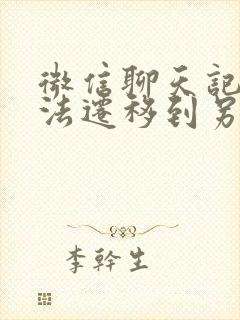 微信聊天記
法遷移到另
李幹生